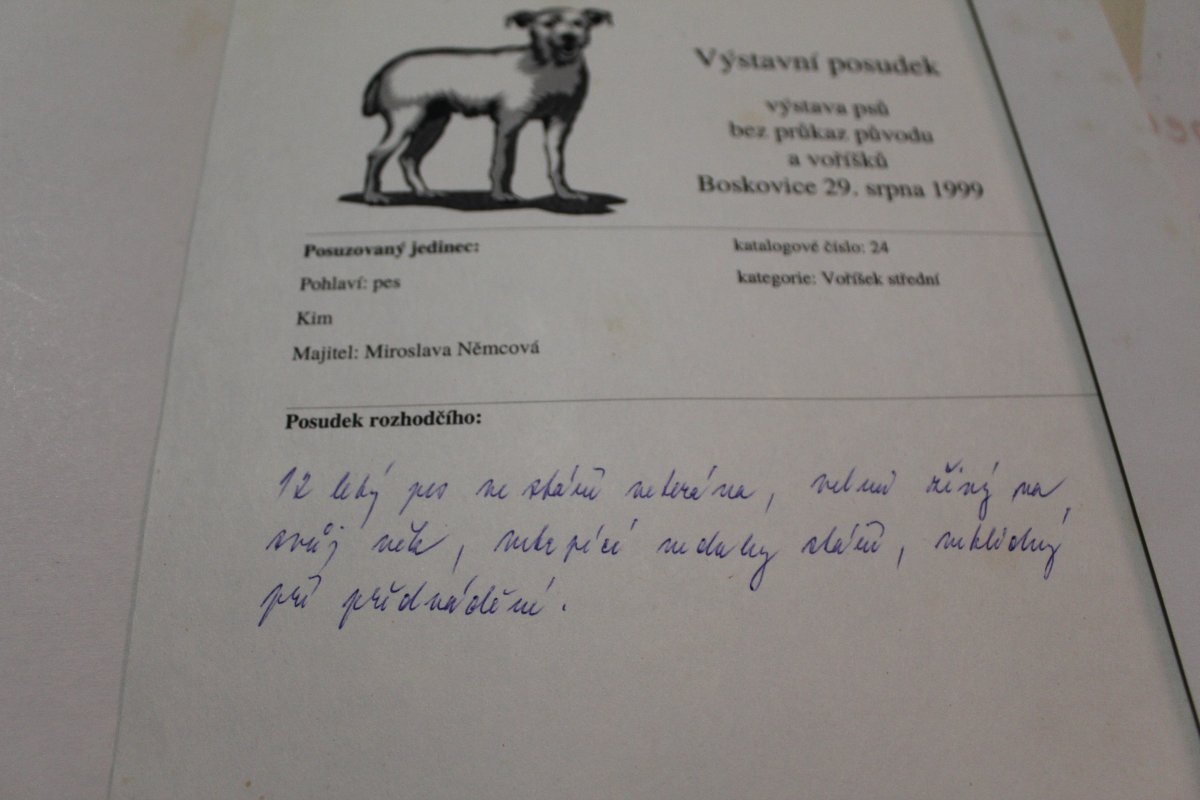 Výstavní posudek
výstava psů
bez průkaz původu
a voříšků
Boskovice 29. srpna 1999
Posuzovaný jedinec:
katalogové číslo: 24
Pohlaví: pes
kategorie: Voříšek střední
Kim
Majitel: Miroslava Němcová
Posudek rozhodčího:
12 letý pes ve stáří veterána, velmi živý na
svůj věk, netrpící neduhy stáří, neklidný
při předvádění.